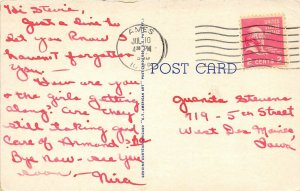 Hi Stevie,
Just a line to
let you know I
haven't forgotten
you.
How are you
& the girls getting
along. Are they
still taking good
care of Armond?
Bye now - see you
soon - Nina
AMES
JUL 16
POST CARD
Juanda Stevens
719 - 5th Street
West Des Moines,
Iowa